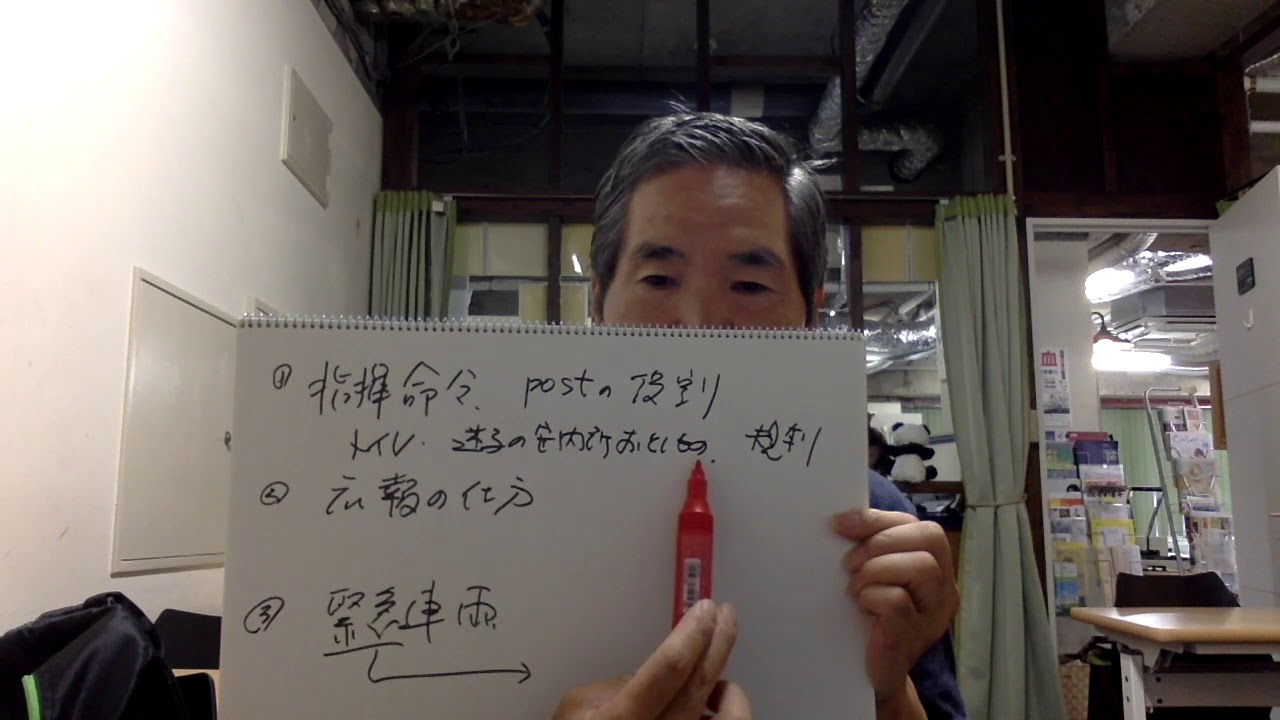 ① 指揮命令、postの役割
トイレ・迷子の案内所おとしもの、規制
② 広報の仕方
③ 緊急車両
血